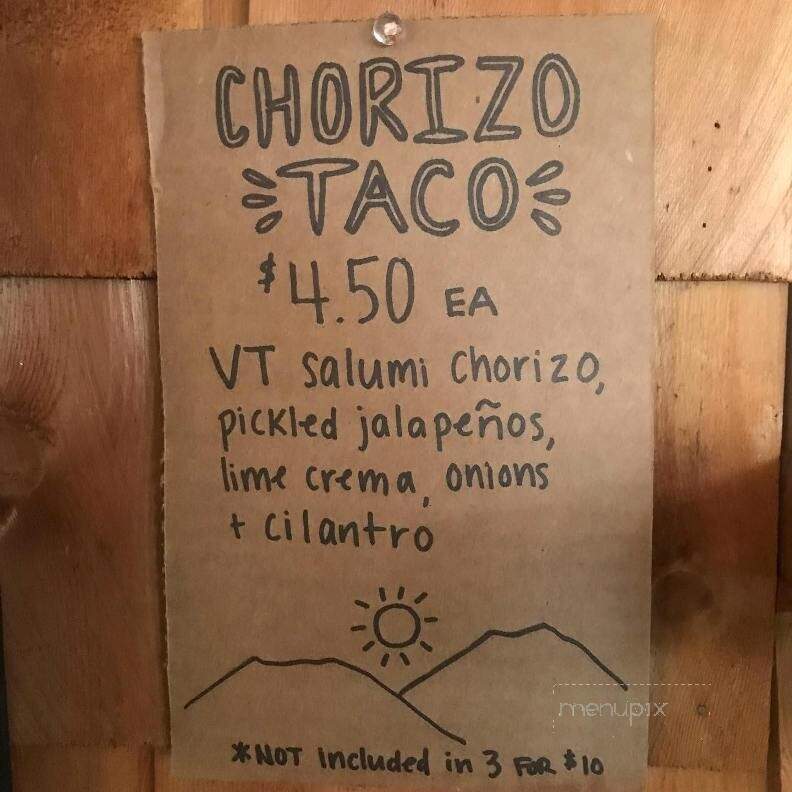 CHORIZO
TACO
$4.50 EA
VT salumi chorizo,
pickled jalapeños,
lime crema, onions
+ cilantro
menupix
*NOT included in 3 FOR $10